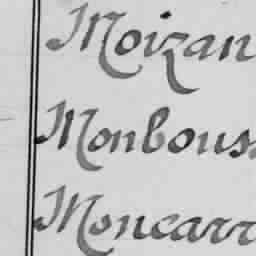 Moizan
Monbous
Moncarr